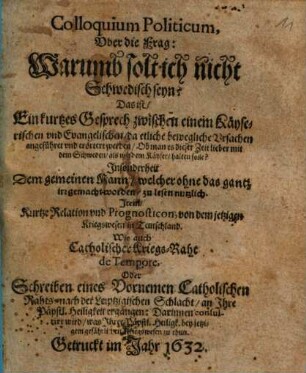 Colloquium Politicum,
Uber die Frag:
Warumb solt ich nicht
Schwedisch seyn?
Das ist/
Ein kurtzes Gesprech zwischen einem Käyse-
rischen vnd Evangelischen/ da etliche bewegliche Vrsachen
angeführet vnd erörtert werden/ Ob man es dieser Zeit lieber mit
dem Schweden/ als mit dem Käyser/ halten solle?
Insonderheit
Dem gemeinen Mann/ welcher ohne das gantz
irr gemacht worden/ zu lesen nützlich.
Item/
Kurtze Relation vnd Prognosticon, von dem jetzigen
Kriegswesen in Teutschland.
Wie auch
Catholischer Kriegs-Raht
de Tempore.
Oder
Schreiben eines Vornemen Catholischen
Rahts nach der Leiptzigischen Schlacht/ an Ihre
Päpstl. Heiligkeit ergangen: Darinnen consul-
tirt wird/ was Ihrer Päpstl. Heiligk. bey jetzi-
gem gefährlichen Kriegswesen zu thun.
Getruckt im Jahr 1632.